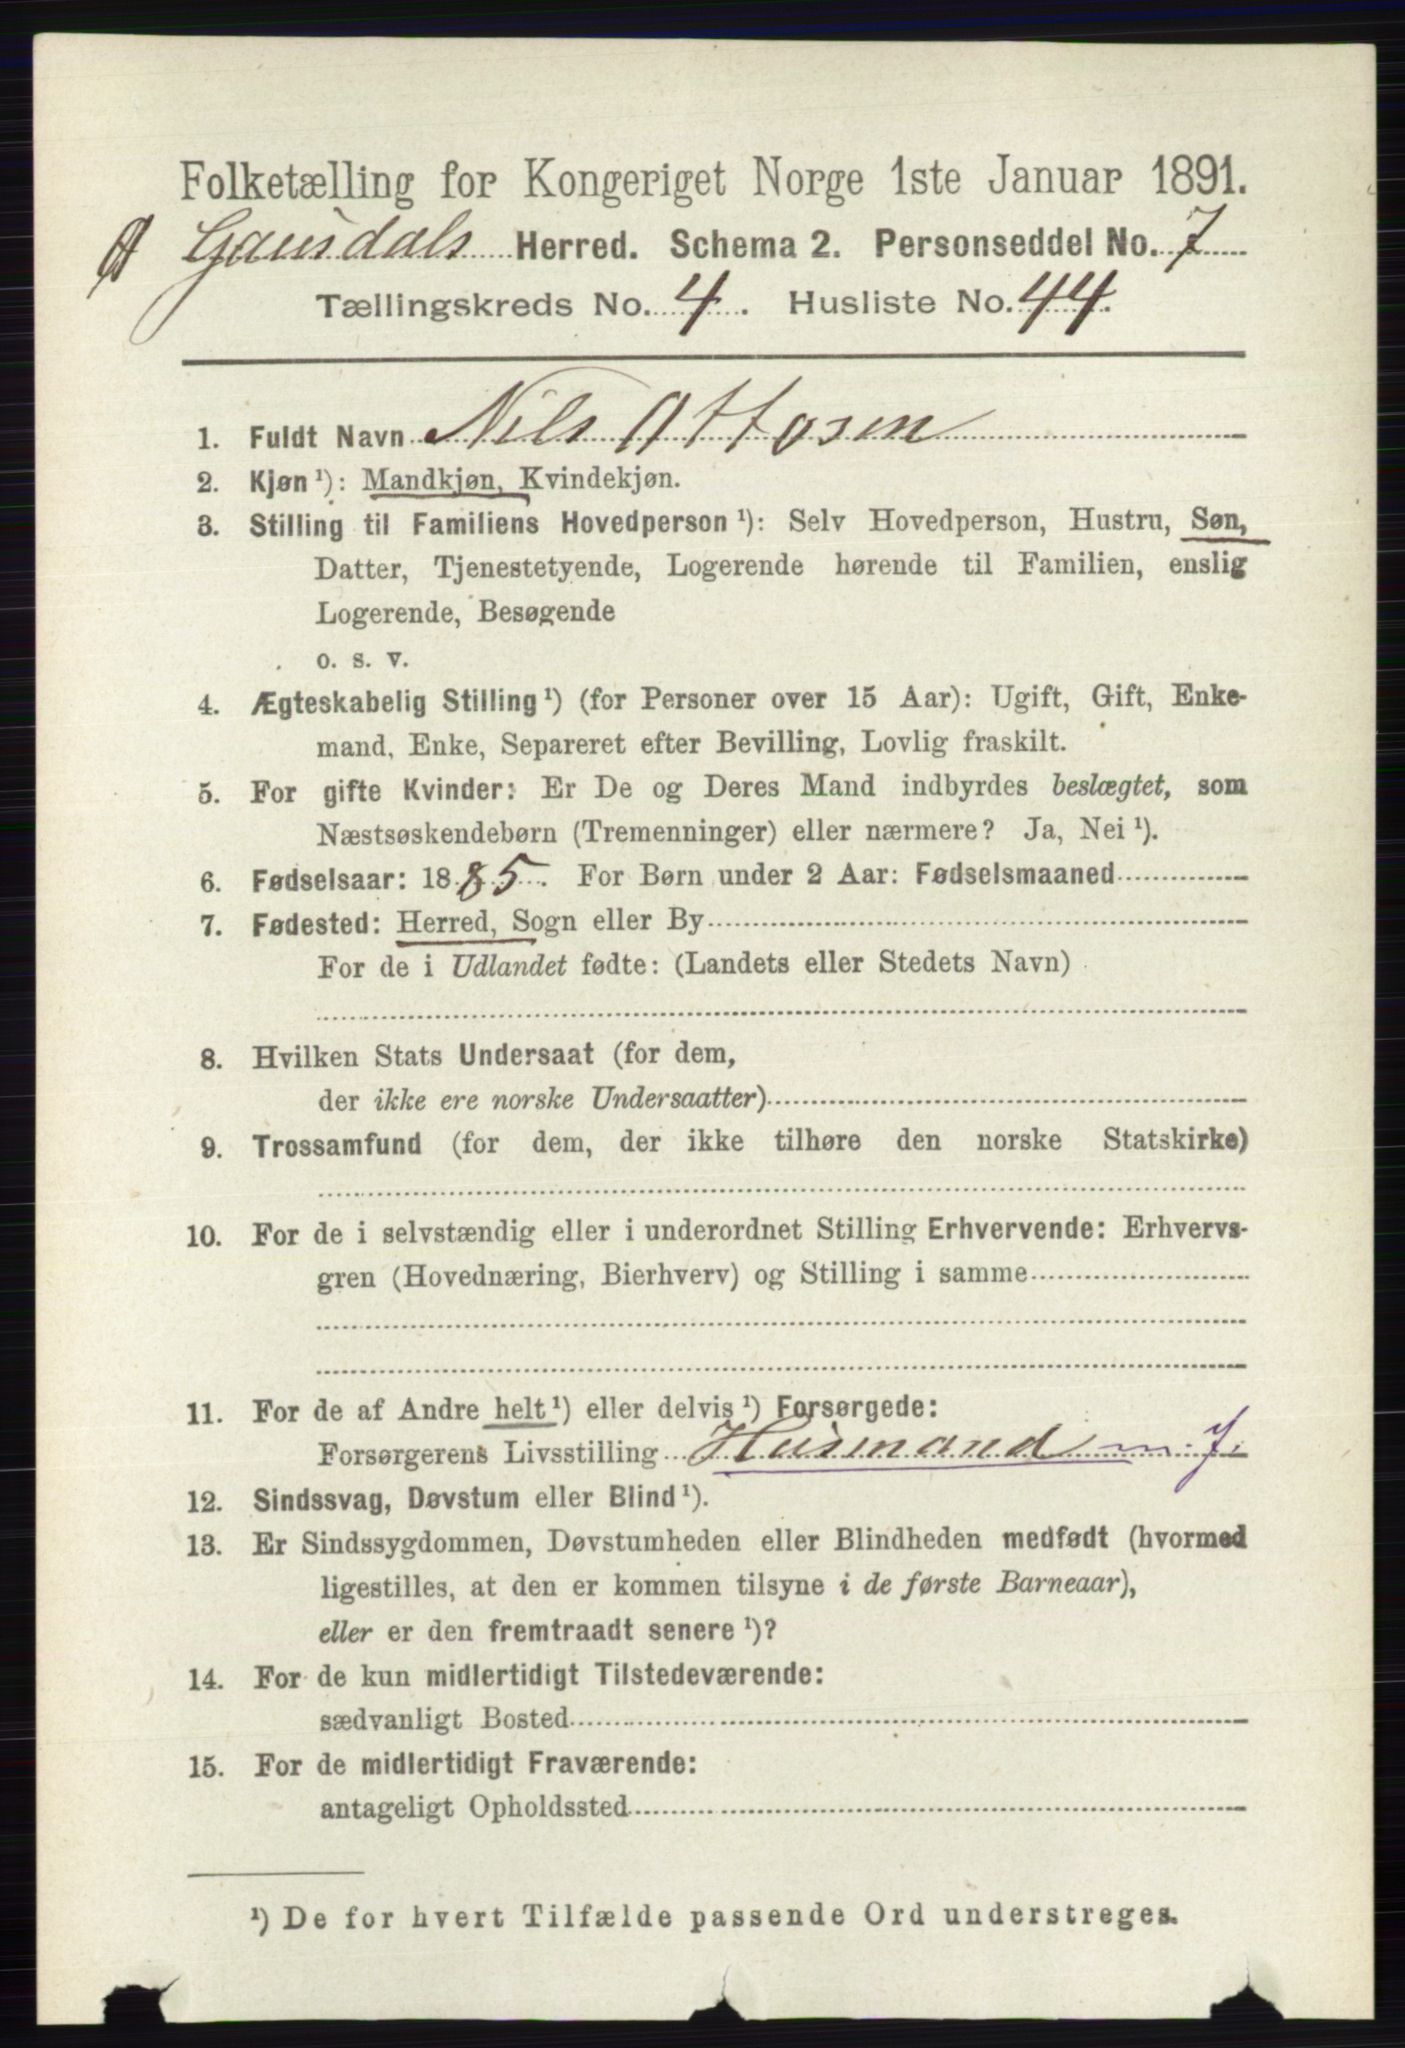 Folketælling for Kongeriget Norge 1ste Januar 1891.
Ø Gausdals Herred. Schema 2. Personseddel No. 7
Tællingskreds No. 4. Husliste No. 44.
1. Fuldt Navn Nils Ottosen
2. Kjøn ¹): Mandkjøn, Kvindekjøn.
3. Stilling til Familiens Hovedperson ¹): Selv Hovedperson, Hustru, Søn,
Datter, Tjenestetyende, Logerende hørende til Familien, enslig
Logerende, Besøgende
o. s. v.
4. Ægteskabelig Stilling ¹) (for Personer over 15 Aar): Ugift, Gift, Enke-
mand, Enke, Separeret efter Bevilling, Lovlig fraskilt.
5. For gifte Kvinder: Er De og Deres Mand indbyrdes beslægtet, som
Næstsøskendebørn (Tremenninger) eller nærmere? Ja, Nei ¹).
6. Fødselsaar: 1885. For Børn under 2 Aar: Fødselsmaaned
7. Fødested: Herred, Sogn eller By
For de i Udlandet fødte: (Landets eller Stedets Navn)
8. Hvilken Stats Undersaat (for dem,
der ikke ere norske Undersaatter)
9. Trossamfund (for dem, der ikke tilhøre den norske Statskirke)
10. For de i selvstændig eller i underordnet Stilling Erhvervende: Erhvervs-
gren (Hovednæring, Bierhverv) og Stilling i samme
11. For de af Andre helt ¹) eller delvis ¹) Forsørgede:
Forsørgerens Livsstilling Husmand m. J.
12. Sindssvag, Døvstum eller Blind ¹).
13. Er Sindssygdommen, Døvstumheden eller Blindheden medfødt (hvormed
ligestilles, at den er kommen tilsyne i de første Barneaar),
eller er den fremtraadt senere ¹)?
14. For de kun midlertidigt Tilstedeværende:
sædvanligt Bosted
15. For de midlertidigt Fraværende:
antageligt Opholdssted
¹) De for hvert Tilfælde passende Ord understreges.